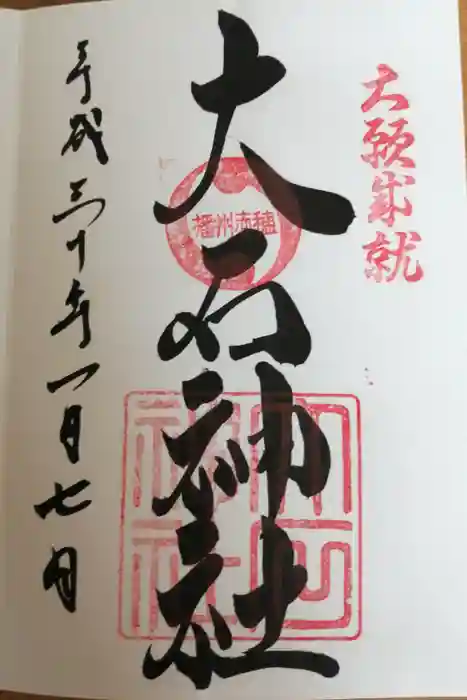 大願成就
大石神社
播州赤穂
大石神社
平成三十年一月七日